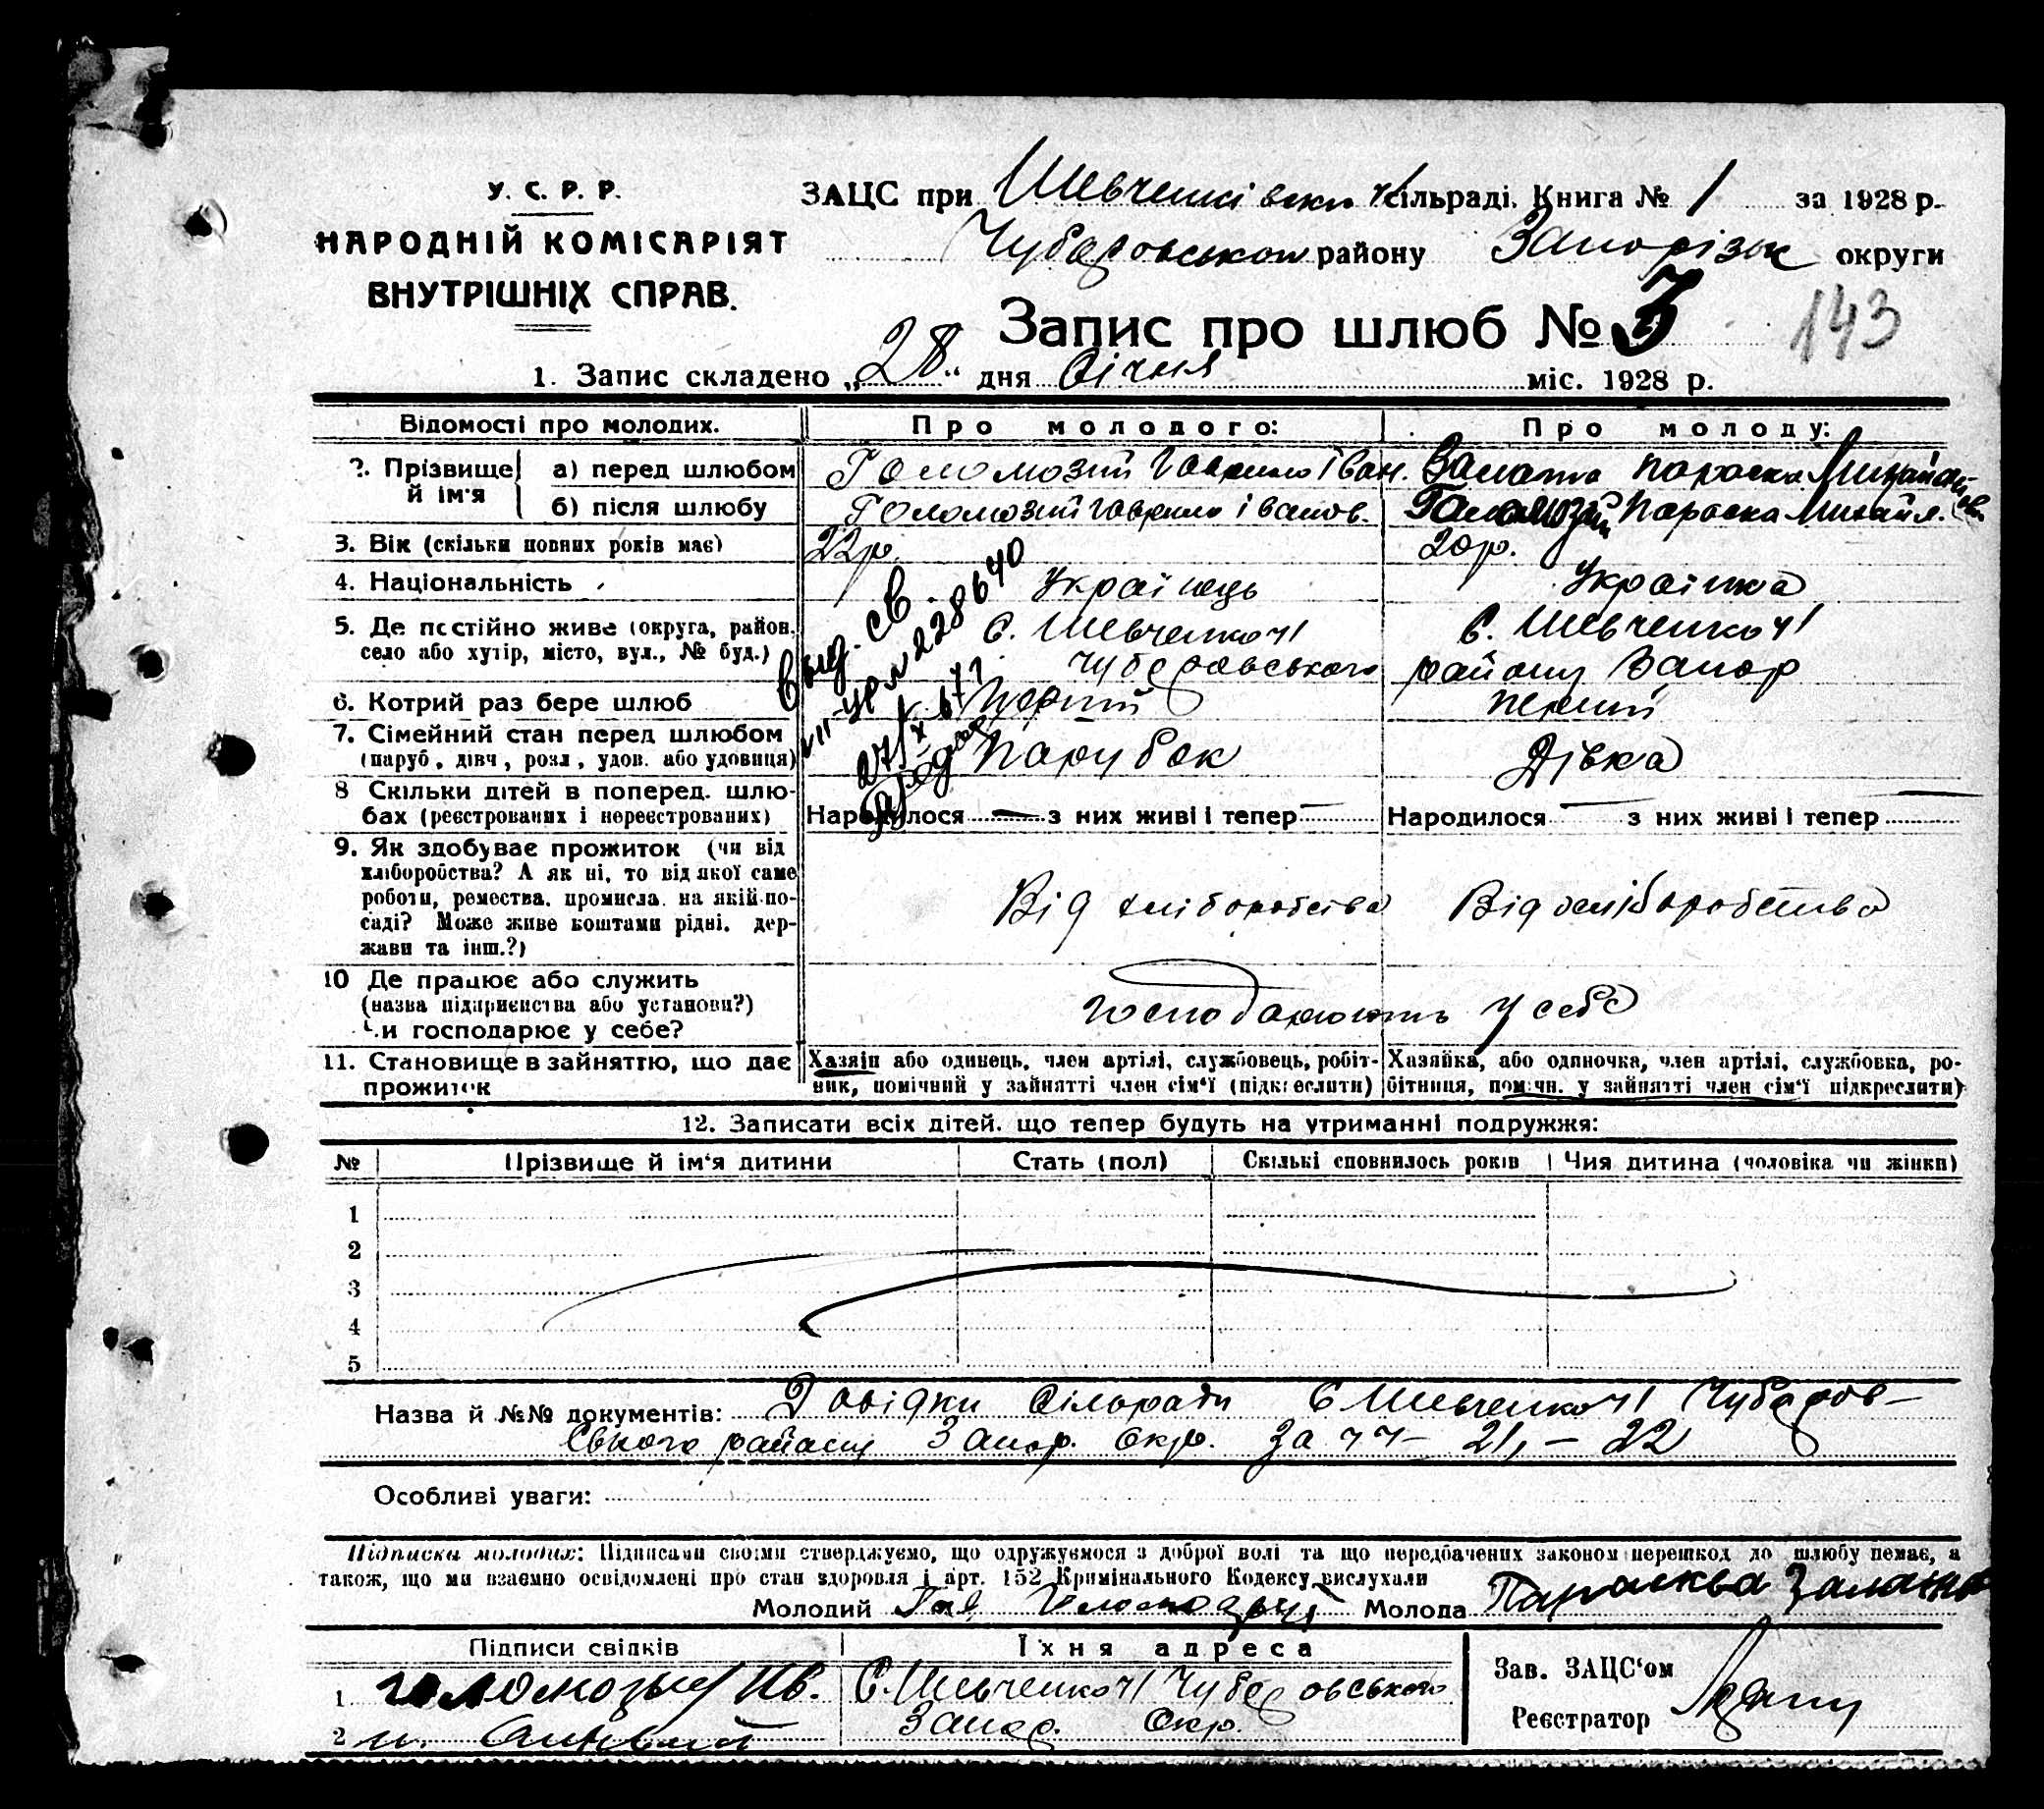 У. С. Р. Р.
НАРОДНІЙ КОМІСАРІЯТ
ВНУТРІШНІХ СПРАВ.
ЗАЦС при Шевченківскі ч/ сільраді. Книга № 1 за 1928 р.
Чубаровськом району Запоріжж округи
Запис про шлюб № 7
143
1. Запис складено „28" дня Січня міс. 1928 р.
Відомості про молодих. Про молодого: Про молоду:
2. Прізвище й ім'я
а) перед шлюбом Голомозий Гаврило Іван. Параска Михайлов
б) після шлюбу Голомозий Гаврило Іванов. Голомозий Параска Михайл.
3. Вік (скільки повних років має) 22 р. 20 р.
4. Національність Українець Українка
5. Де постійно живе (округа, район, С. Шевченко ч/ С. Шевченко ч/
село або хутір, місто, вул., № буд.) Чубаровського району Запор
6. Котрий раз бере шлюб Перший Перший
7. Сімейний стан перед шлюбом Парубок Дівка
(паруб., дівч., розл., удов. або удовиця)
выд. св.
№ 228640
8 Скільки дітей в поперед. шлю-
бах (реєстрованих і нереєстрованих) Народилося — з них живі і тепер Народилося з них живі і тепер
9. Як здобуває прожиток (чи від
хліборобства? А як ні, то від якої саме
роботи, ремества, промисла, на якій по-
саді? Може живе коштами рідні, дер-
жави та інш.?)
Від хліборобства Від хліборобства
10 Де працює або служить
(назва підприємства або установи?)
Чи господарює у себе?
господарюють у себе
11. Становище в зайняттю, що дає Хазяїн або одинець, член артілі, службовець, робіт- Хазяйка, або одиночка, член артілі, службовка, ро-
прожиток ник, помічний у зайнятті член сім'ї (підкреслити) бітниця, помічн. у зайнятті член сім'ї підкреслити)
12. Записати всіх дітей, що тепер будуть на утриманні подружжя:
№ Прізвище й ім'я дитини Стать (пол) Скількі сповнилось років Чия дитина (чоловіка чи жінки)
1
2
3
4
5
Назва й №№ документів: Довідки Сільради С Шевченко ч/ Чубаров-
ського району Запор. Окр. за чч – 21, – 22
Особливі уваги:
Підписка молодих: Підписами своїми стверджуємо, що одружуємося з доброї волі та що передбачених законом перешкод до шлюбу немає, а
також, що ми взаємно освідомлені про стан здоровля і арт. 152 Кримінального Кодексу вислухали
Молодий Гав Молода Параскева
Підписи свідків Їхня адреса
1 Ив. С. Шевченко ч/ Чубаровського
2 Запор. Окр.
Зав. ЗАЦС'ом
Реєстратор